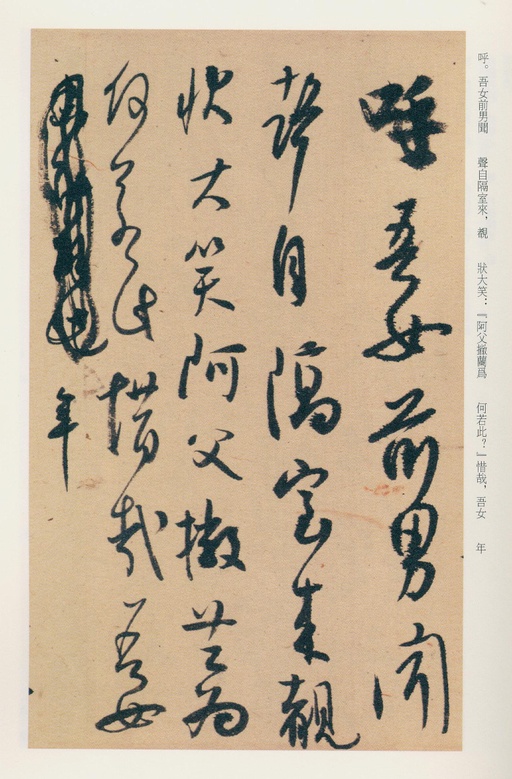 呼。吾女前男聞　聲自隔室來，覩　狀大笑：『阿父撇蘭爲　何若此？』惜哉，吾女　年
呼吾女前男闻
聲自隔室来覩
狀大笑阿父撇兰为
何若此惜哉吾女
年